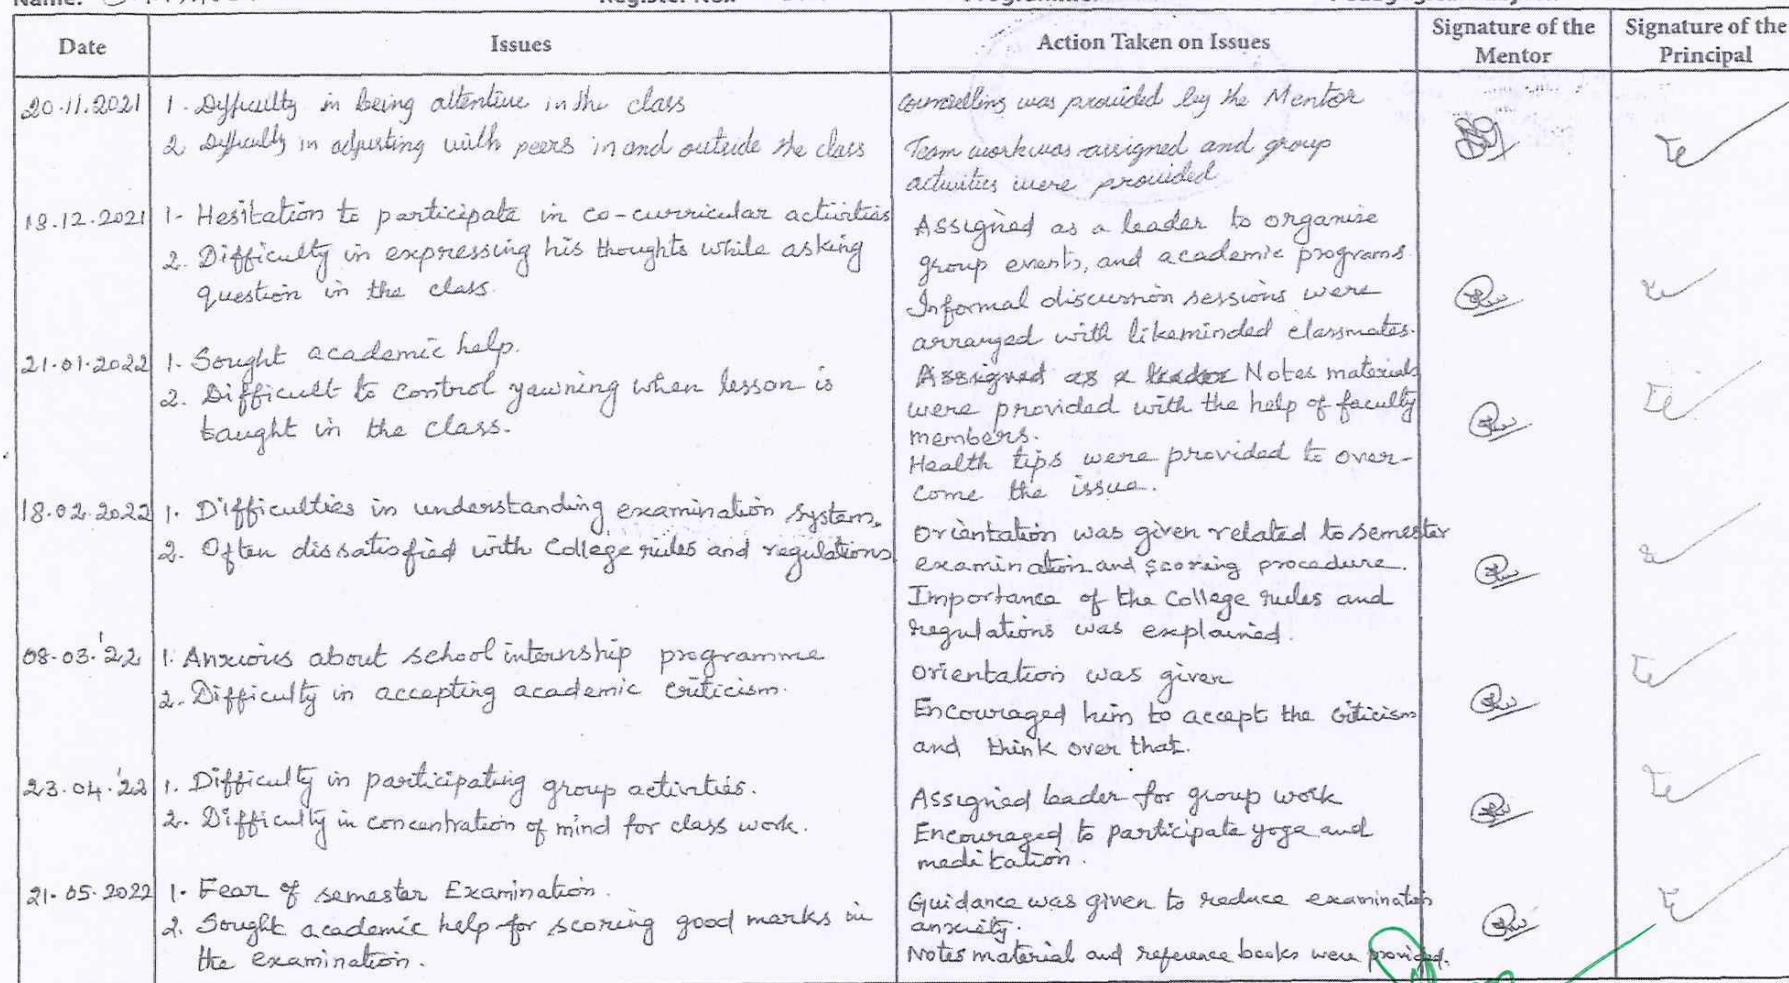 Name:
Date Issues Action Taken on Issues Signature of the Mentor Signature of the Principal
20.11.2021 1. Difficulty in being attentive in the class
2. Difficulty in adjusting with peers in and outside the class
Counselling was provided by the Mentor
Team work was assigned and group
activities were provided
18.12.2021 1. Hesitation to participate in co-curricular activities
2. Difficulty in expressing his thoughts while asking
question in the class.
Assigned as a leader to organise
group events, and academic programs.
Informal discussion sessions were
arranged with likeminded classmates.
21.01.2022 1. Sought academic help.
2. Difficult to control yawning when lesson is
taught in the class.
Assigned as a leader Notes materials
were provided with the help of faculty
members.
Health tips were provided to over-
come the issue.
18.02.2022 1. Difficulties in understanding examination system.
2. Often dissatisfied with College rules and regulations
Orientation was given related to semester
examination and scoring procedure.
Importance of the College rules and
regulations was explained.
08.03.'22 1. Anxious about school internship programme
2. Difficulty in accepting academic criticism.
Orientation was given
Encouraged him to accept the citicism
and think over that.
23.04.'22 1. Difficulty in participating group activities.
2. Difficulty in concentration of mind for class work.
Assigned leader for group work
Encouraged to participate yoga and
meditation.
21.05.2022 1. Fear of semester Examination.
2. Sought academic help for scoring good marks in
the examination.
Guidance was given to reduce examination
anxiety.
Notes material and reference books were provided.